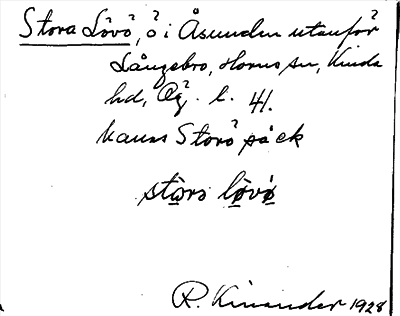 Stora Lövö, ö i Åsunden utanför
Långebro, Horns sn, Kinda
hd, Ög. l. 41.
kauns Storö på ek
stòrə lø̀vø
R. Kinander 1928